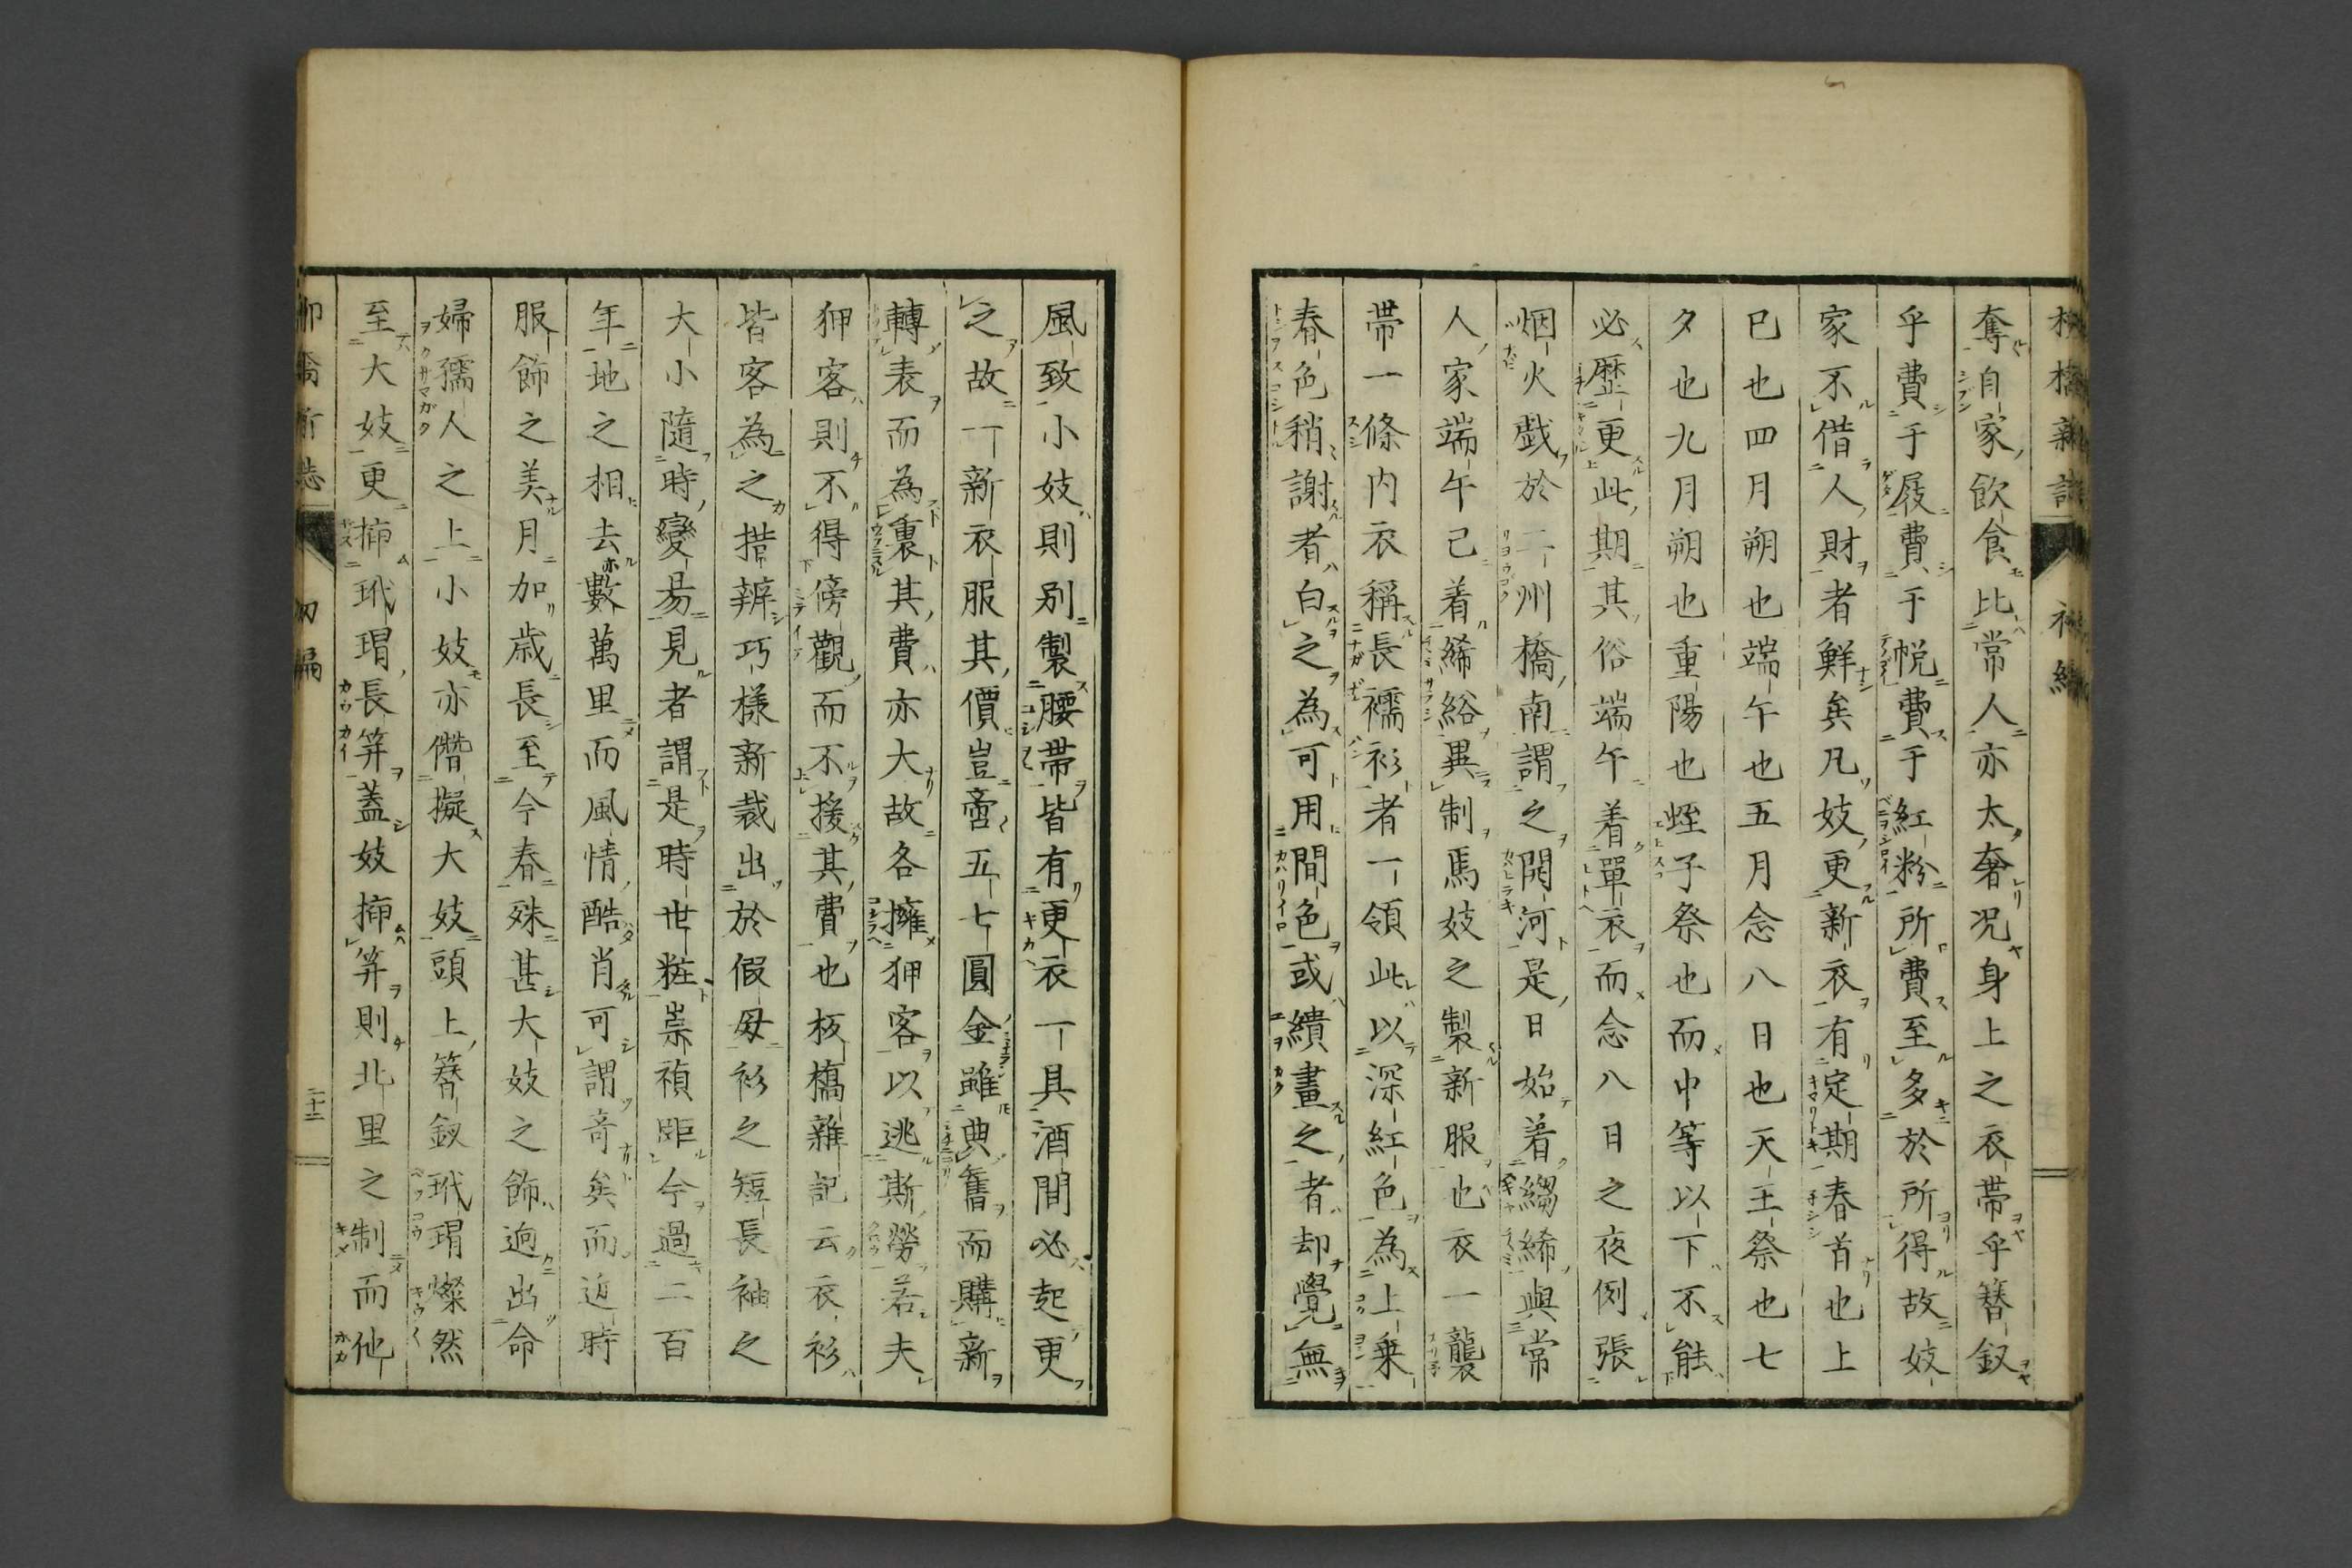 奪自家飲食比常人亦太奢况身上之衣帶乎簪釵
乎費于屐費于帨費于紅粉所費至多於所得故妓
家不借人財者鮮矣凡妓更新衣有定期春首也上
巳也四月朔也端午也五月念八日也天王祭也七
夕也九月朔也重陽也蛭子祭也而中等以下不能
必歷更此期其俗端午着單衣而念八日之夜例張
烟火戲於二州橋南謂之開河是日始着縐絺與常
人家端午已着絺綌異制馬妓之製新服也衣一襲
帶一條内衣稱長襦衫者一領此以深紅色為上乗
春色稍謝者白之為可用間色或繢畫之者却覺無
風致小妓則別製腰帶皆有更衣一具酒間必起更
之故一新衣服其價豈啻五七圓金雖典舊而購新
轉表而為裏其費亦大故各擁狎客以逃斯勞若夫
狎客則不得傍觀而不援其費也板橋雜記云衣衫
皆客為之措辨巧樣新裁出於假母衫之短長袖之
大小隨時變易見者謂是時世粧崇禎距今過二百
年地之相去數萬里而風情酷肖可謂奇矣而近時
服飾之美月加歳長至今春殊甚大妓之飾逈出命
婦孺人之上小妓亦僭擬大妓頭上簪釵玳瑁燦然
至大妓更揷玳瑁長筓蓋妓揷筓則北里之制而他
柳橋新誌
初編
二十二